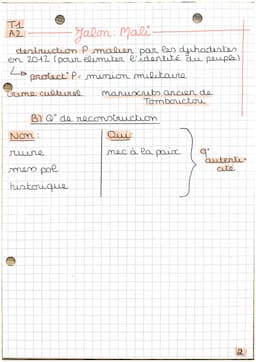 T1
A2
Jalon : Mali
destruction P. malien par les djihadistes
en 2012 (pour eliminer l'identité du peuple)
↳ protect° P = mission militaire
crime culturel manuscrits ancien de
Tombouctou
B) Q° de reconstruction
Non : Oui :
ruine nec à la paix q°
mem pol autenti-
historique cité
2